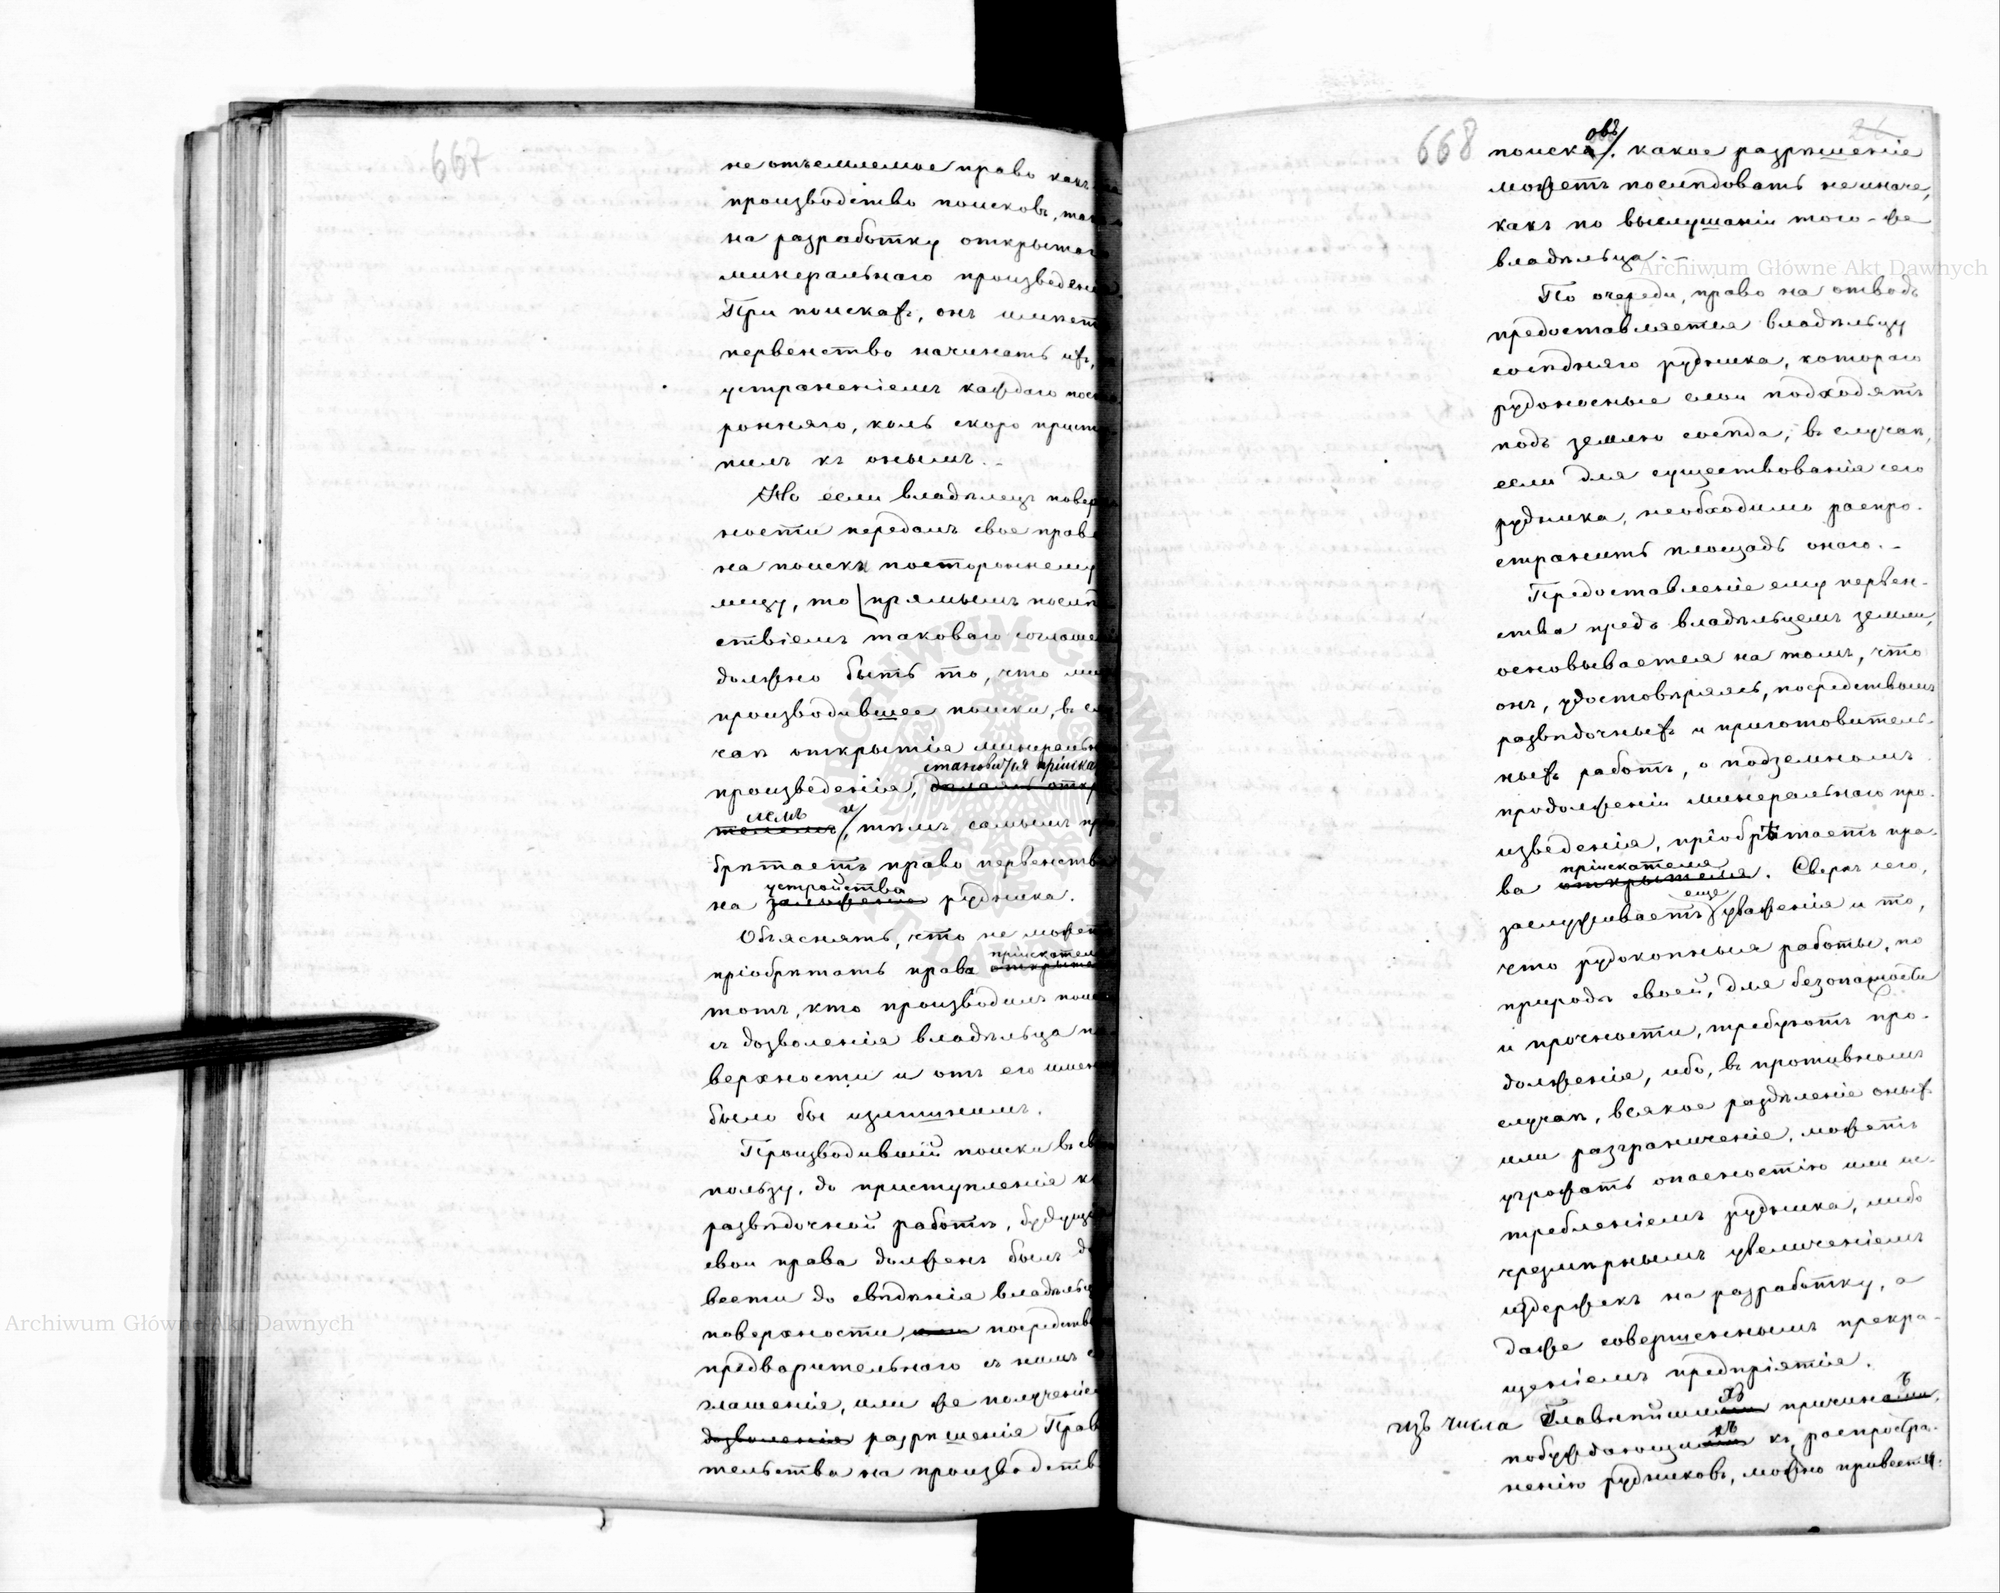 667
не отъемлемое право какъ на
производство поисковъ, такъ
на разработку открытаго
минеральнаго произведенія
При поискахъ, онъ имѣетъ
первенство начинать ихъ,
устраненіемъ каждаго посто
ронняго, коль скоро присту
пилъ къ онымъ.
Но если владѣлецъ поверх
ности передалъ свое право
на поиски постороннему
лицу, то прямымъ послѣд
ствіемъ таковаго соглашен
должно быть то, что ли
производившее поиски, въ слу
чаѣ открытія минеральн
становится пріиска
произведенія, дѣлаясь откр
лемъ и
телемъ, тѣмъ самымъ прі
брѣтаетъ право первенства
устройство
на заложеніе рудника.
Объяснять, что не можетъ
пріискател
пріобрѣтать права открыте
тотъ, кто производилъ поис
съ дозволенія владѣльца по
верхности и отъ его имен
было бы излишнимъ.
Производившій поиски въ св
пользу, до приступленія къ
развѣдочной работѣ, будущія
свои права долженъ былъ до
вести до свѣдѣнія владѣльца
поверхности, посредство
предварительнаго съ нимъ со
глашенія, или же полученіе
дозволенія разрѣшенія Прав
тельства на производств
668
26
овъ
поиска. какое разрѣшеніе
можетъ послѣдовать не иначе,
какъ по выслушаніи того-же
владѣльца.
По очереди, право на отводъ
предоставляется владѣльцу
сосѣдняго рудника, котораго
рудоносные слои подходятъ
подъ землю сосѣда, въ случаѣ,
если для существованія сего
рудника, необходимо распро-
странить площадь онаго.
Предоставленіе ему первен-
ства предъ владѣльцемъ земли,
основывается на томъ, что
онъ, удостовѣряясь, посредствомъ
развѣдочныхъ и приготовитель-
ныхъ работъ, о подземномъ
продолженіи минеральнаго про-
изведенія, пріобрѣтаетъ пра-
пріискателя
ва открытеля. Сверхъ сего,
еще
заслуживаетъ уваженія и то,
что рудокопныя работы, по
природѣ своей, для безопасности
и прочности, требуютъ про-
долженія, ибо, въ противномъ
случаѣ, всякое раздѣленіе оныхъ
или разграниченіе, можетъ
угрожать опасностію или ис-
требленіемъ рудника, либо
чрезмѣрнымъ увеличеніемъ
издержекъ на разработку, а
даже совершеннымъ прекра-
щеніемъ предпріятія.
хъ ъ
изъ числа Главнѣйшими причинами,
хъ
побуждающими къ распростра-
ненію рудниковъ, можно привести:
Archiwum Główne Akt Dawnych
Archiwum Główne Akt Dawnych
ARCHIWUM GŁÓWNE AKT DAWNYCH